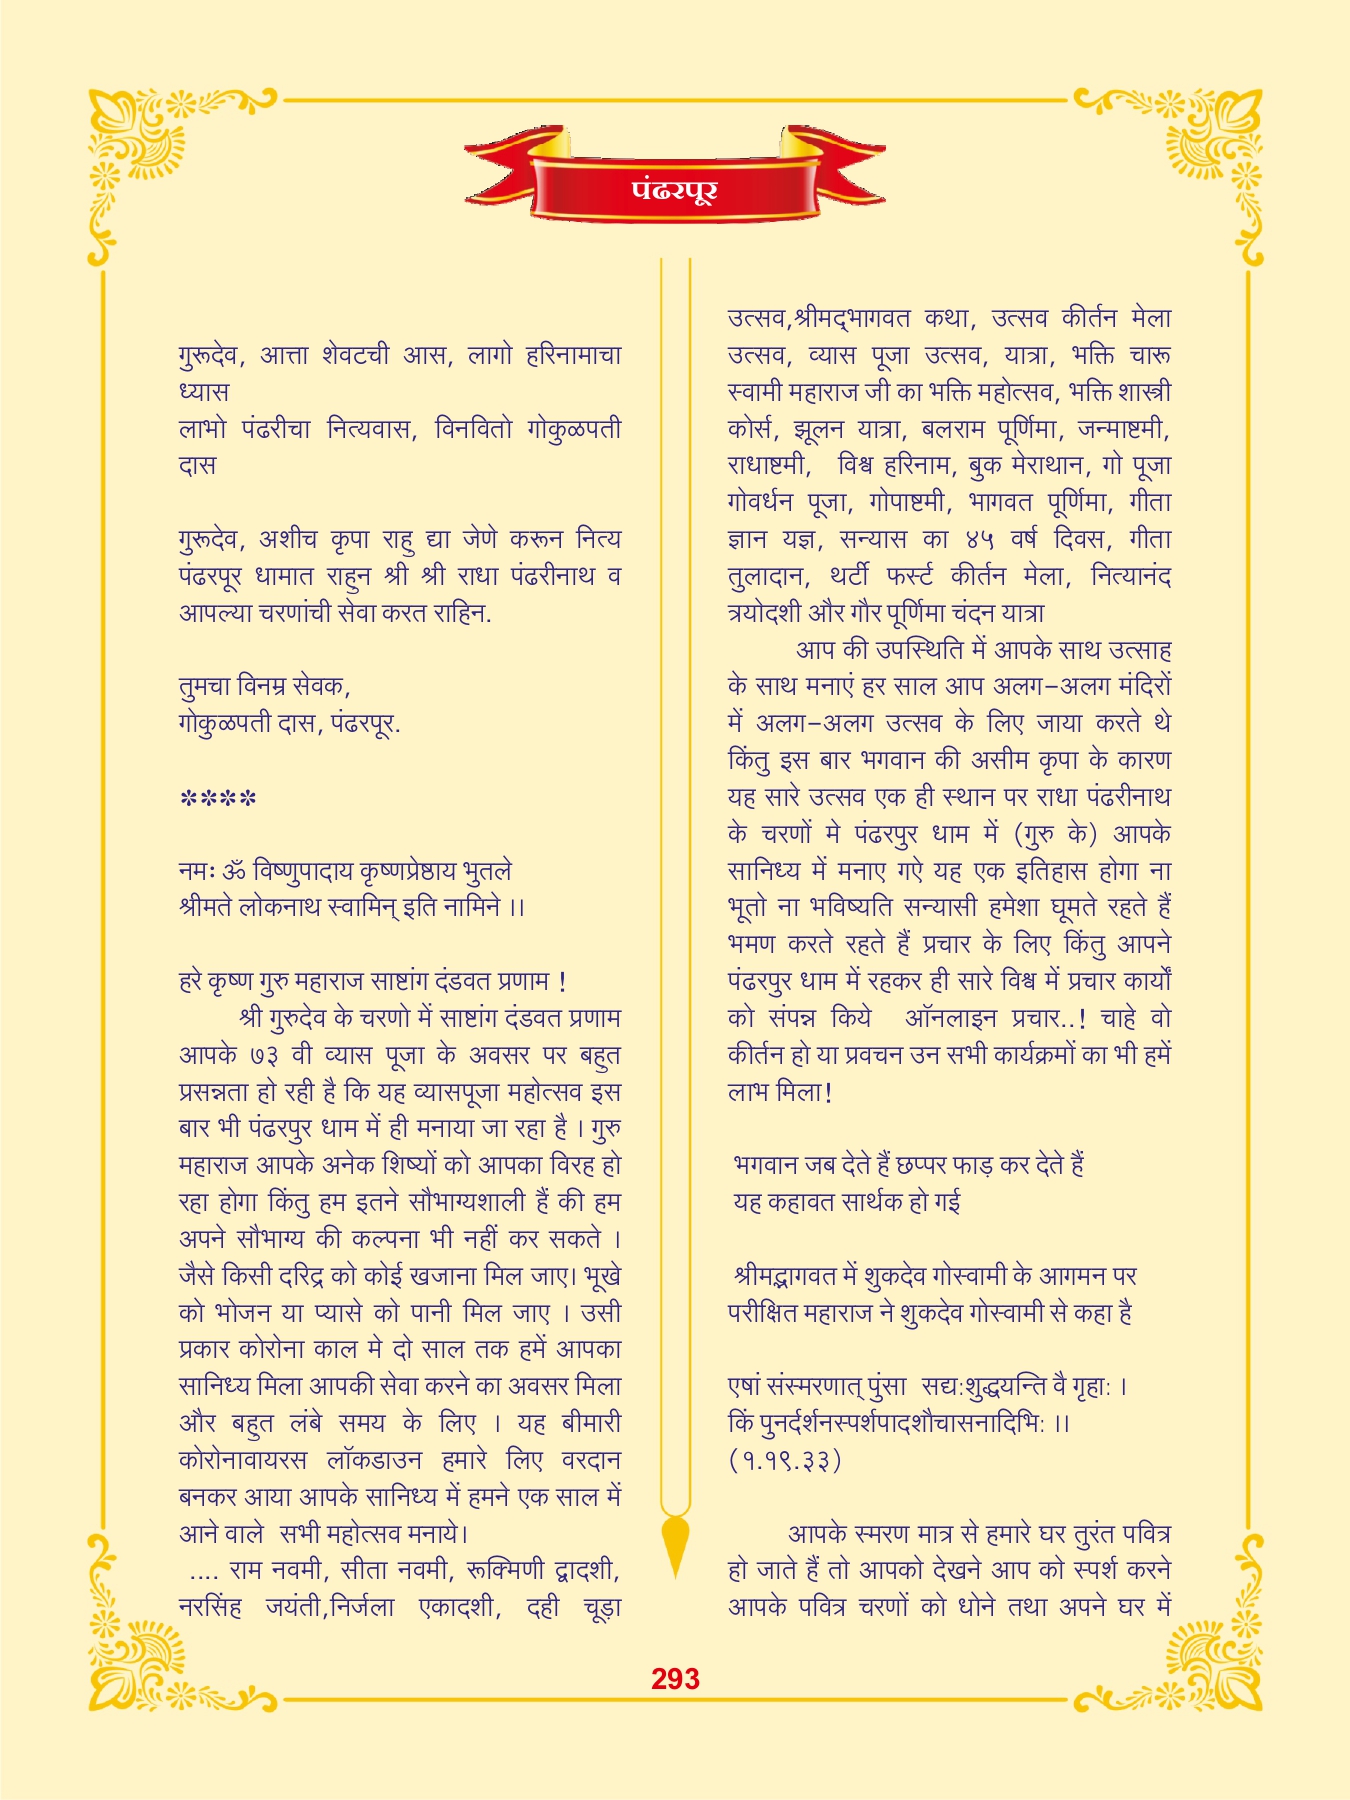 पंढरपूर
गुरूदेव, आत्ता शेवटची आस, लागो हरिनामाचा
ध्यास
लाभो पंढरीचा नित्यवास, विनवितो गोकुळपती
दास
गुरूदेव, अशीच कृपा राहु द्या जेणे करून नित्य
पंढरपूर धामात राहुन श्री श्री राधा पंढरीनाथ व
आपल्या चरणांची सेवा करत राहिन.
तुमचा विनम्र सेवक,
गोकुळपती दास, पंढरपूर.
****
नमः ॐ विष्णुपादाय कृष्णप्रेष्ठाय भुतले
श्रीमते लोकनाथ स्वामिन् इति नामिने ।।
हरे कृष्ण गुरु महाराज साष्टांग दंडवत प्रणाम !
श्री गुरुदेव के चरणो में साष्टांग दंडवत प्रणाम
आपके ७३ वी व्यास पूजा के अवसर पर बहुत
प्रसन्नता हो रही है कि यह व्यासपूजा महोत्सव इस
बार भी पंढरपुर धाम में ही मनाया जा रहा है । गुरु
महाराज आपके अनेक शिष्यों को आपका विरह हो
रहा होगा किंतु हम इतने सौभाग्यशाली हैं की हम
अपने सौभाग्य की कल्पना भी नहीं कर सकते ।
जैसे किसी दरिद्र को कोई खजाना मिल जाए। भूखे
को भोजन या प्यासे को पानी मिल जाए । उसी
प्रकार कोरोना काल मे दो साल तक हमें आपका
सानिध्य मिला आपकी सेवा करने का अवसर मिला
और बहुत लंबे समय के लिए । यह बीमारी
कोरोनावायरस लॉकडाउन हमारे लिए वरदान
बनकर आया आपके सानिध्य में हमने एक साल में
आने वाले सभी महोत्सव मनाये।
.... राम नवमी, सीता नवमी, रूक्मिणी द्वादशी,
नरसिंह जयंती,निर्जला एकादशी, दही चूड़ा
उत्सव,श्रीमद्‌भागवत कथा, उत्सव कीर्तन मेला
उत्सव, व्यास पूजा उत्सव, यात्रा, भक्ति चारू
स्वामी महाराज जी का भक्ति महोत्सव, भक्ति शास्त्री
कोर्स, झूलन यात्रा, बलराम पूर्णिमा, जन्माष्टमी,
राधाष्टमी, विश्व हरिनाम, बुक मेराथान, गो पूजा
गोवर्धन पूजा, गोपाष्टमी, भागवत पूर्णिमा, गीता
ज्ञान यज्ञ, सन्यास का ४५ वर्ष दिवस, गीता
तुलादान, थर्टी फर्स्ट कीर्तन मेला, नित्यानंद
त्रयोदशी और गौर पूर्णिमा चंदन यात्रा
आप की उपस्थिति में आपके साथ उत्साह
के साथ मनाएं हर साल आप अलग-अलग मंदिरों
में अलग-अलग उत्सव के लिए जाया करते थे
किंतु इस बार भगवान की असीम कृपा के कारण
यह सारे उत्सव एक ही स्थान पर राधा पंढरीनाथ
के चरणों मे पंढरपुर धाम में (गुरु के) आपके
सानिध्य में मनाए गऐ यह एक इतिहास होगा ना
भूतो ना भविष्यति सन्यासी हमेशा घूमते रहते हैं
भमण करते रहते हैं प्रचार के लिए किंतु आपने
पंढरपुर धाम में रहकर ही सारे विश्व में प्रचार कार्यों
को संपन्न किये ऑनलाइन प्रचार..! चाहे वो
कीर्तन हो या प्रवचन उन सभी कार्यक्रमों का भी हमें
लाभ मिला!
भगवान जब देते हैं छप्पर फाड़ कर देते हैं
यह कहावत सार्थक हो गई
श्रीमद्भागवत में शुकदेव गोस्वामी के आगमन पर
परीक्षित महाराज ने शुकदेव गोस्वामी से कहा है
एषां संस्मरणात् पुंसा सद्य:शुद्धयन्ति वै गृहा: ।
किं पुनर्दर्शनस्पर्शपादशौचासनादिभि: ।।
(१.१९.३३)
आपके स्मरण मात्र से हमारे घर तुरंत पवित्र
हो जाते हैं तो आपको देखने आप को स्पर्श करने
आपके पवित्र चरणों को धोने तथा अपने घर में
293